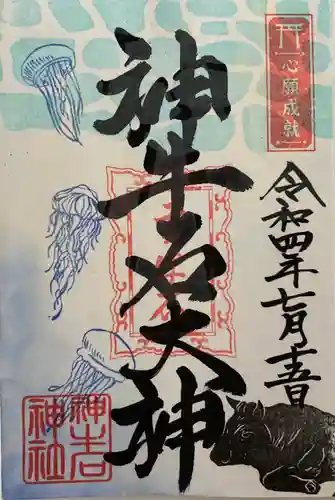 心願成就
神牛石大神
令和四年七月十五日
神石
神社